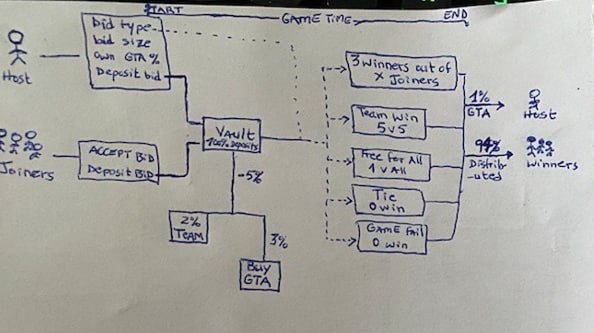 START
GAME TIME
END
bid type
bid size
own GTA %
Deposit bid
Host
ACCEPT BID
Deposit BID
Joiners
VAULT
100% Deposits
-5%
2%
TEAM
3%
Buy
GTA
3 winners out of
X Joiners
Team Win
5 v 5
Free for All
1 v All
Tie
0 win
GAME FAIL
0 win
1%
GTA
Host
94%
Distrib
-uted
Winners